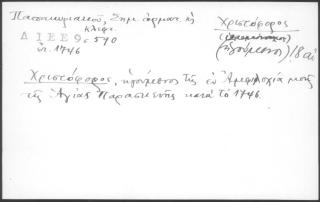 Παπακυριακού, Σημ. αρματ. κ
κλεφτ.
Δ Ι Ε Ε 9 σ 510
ετ. 1746
Χριστόφορος
(ηγούμενος) 18 αι
Χριστόφορος, ηγούμενος της εν Αμφιλοχία μονής
της Αγίας Παρασκευής κατά το 1746.